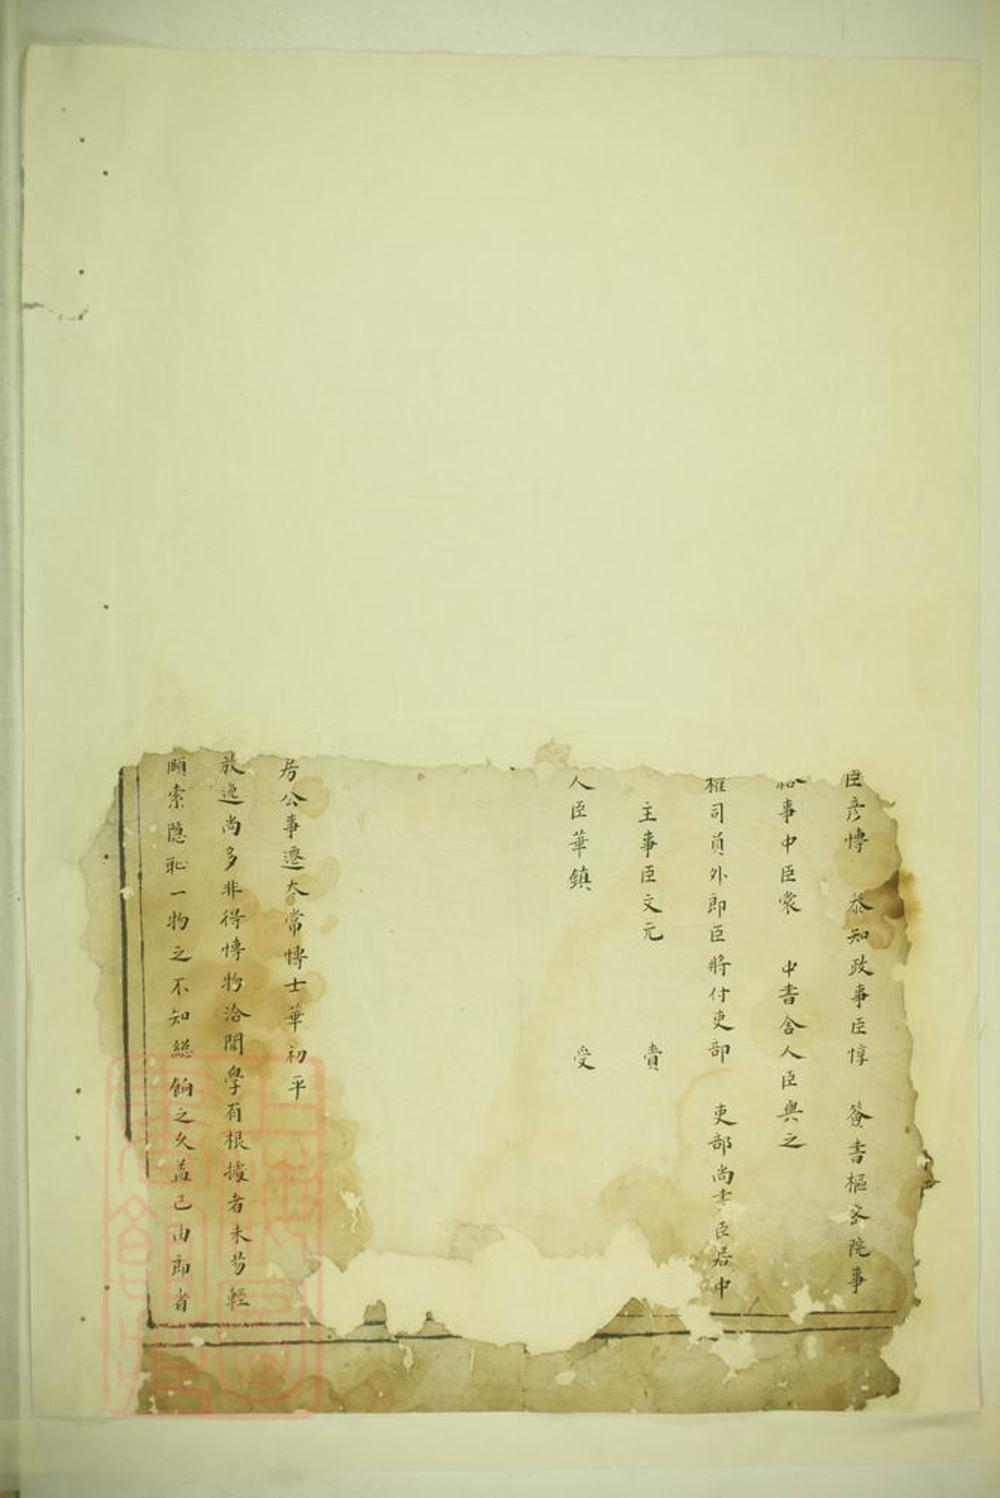 臣彦博　叅知政事臣惇　簽書樞密院事
給事中臣裳　中書舎人臣輿之
權司員外郎臣將付吏部　吏部尚書臣居中
主事臣文元　賫
人臣華鎮　受
居公事遷太常博士華初平
放逸尚多非得博物洽聞學有根據者未易輕
頤索隱恥一物之不知總餉之久益己由即省